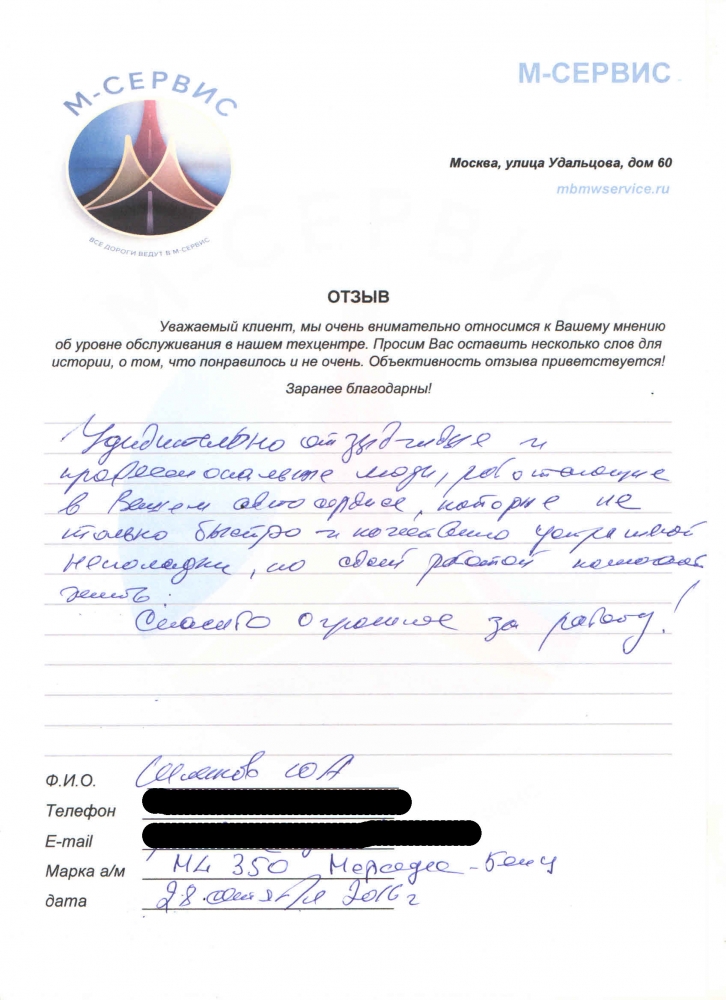 М-СЕРВИС
М-СЕРВИС
ВСЕ ДОРОГИ ВЕДУТ В М-СЕРВИС
Москва, улица Удальцова, дом 60
mbmwservice.ru
М-СЕРВИС
ОТЗЫВ
Уважаемый клиент, мы очень внимательно относимся к Вашему мнению
об уровне обслуживания в нашем техцентре. Просим Вас оставить несколько слов для
истории, о том, что понравилось и не очень. Объективность отзыва приветствуется!
Заранее благодарны!
Удивительно отзывчивые и
профессиональные люди, работающие
в Вашем автосервисе, которые не
только быстро и качественно устраняют
неполадки, но своей работой помогают
жить.
Спасибо огромное за работу!
Ф.И.О. ЮА
Телефон
E-mail
Марка а/м ML 350 Мерседес-Бенц
дата 28 сентября 2016 г